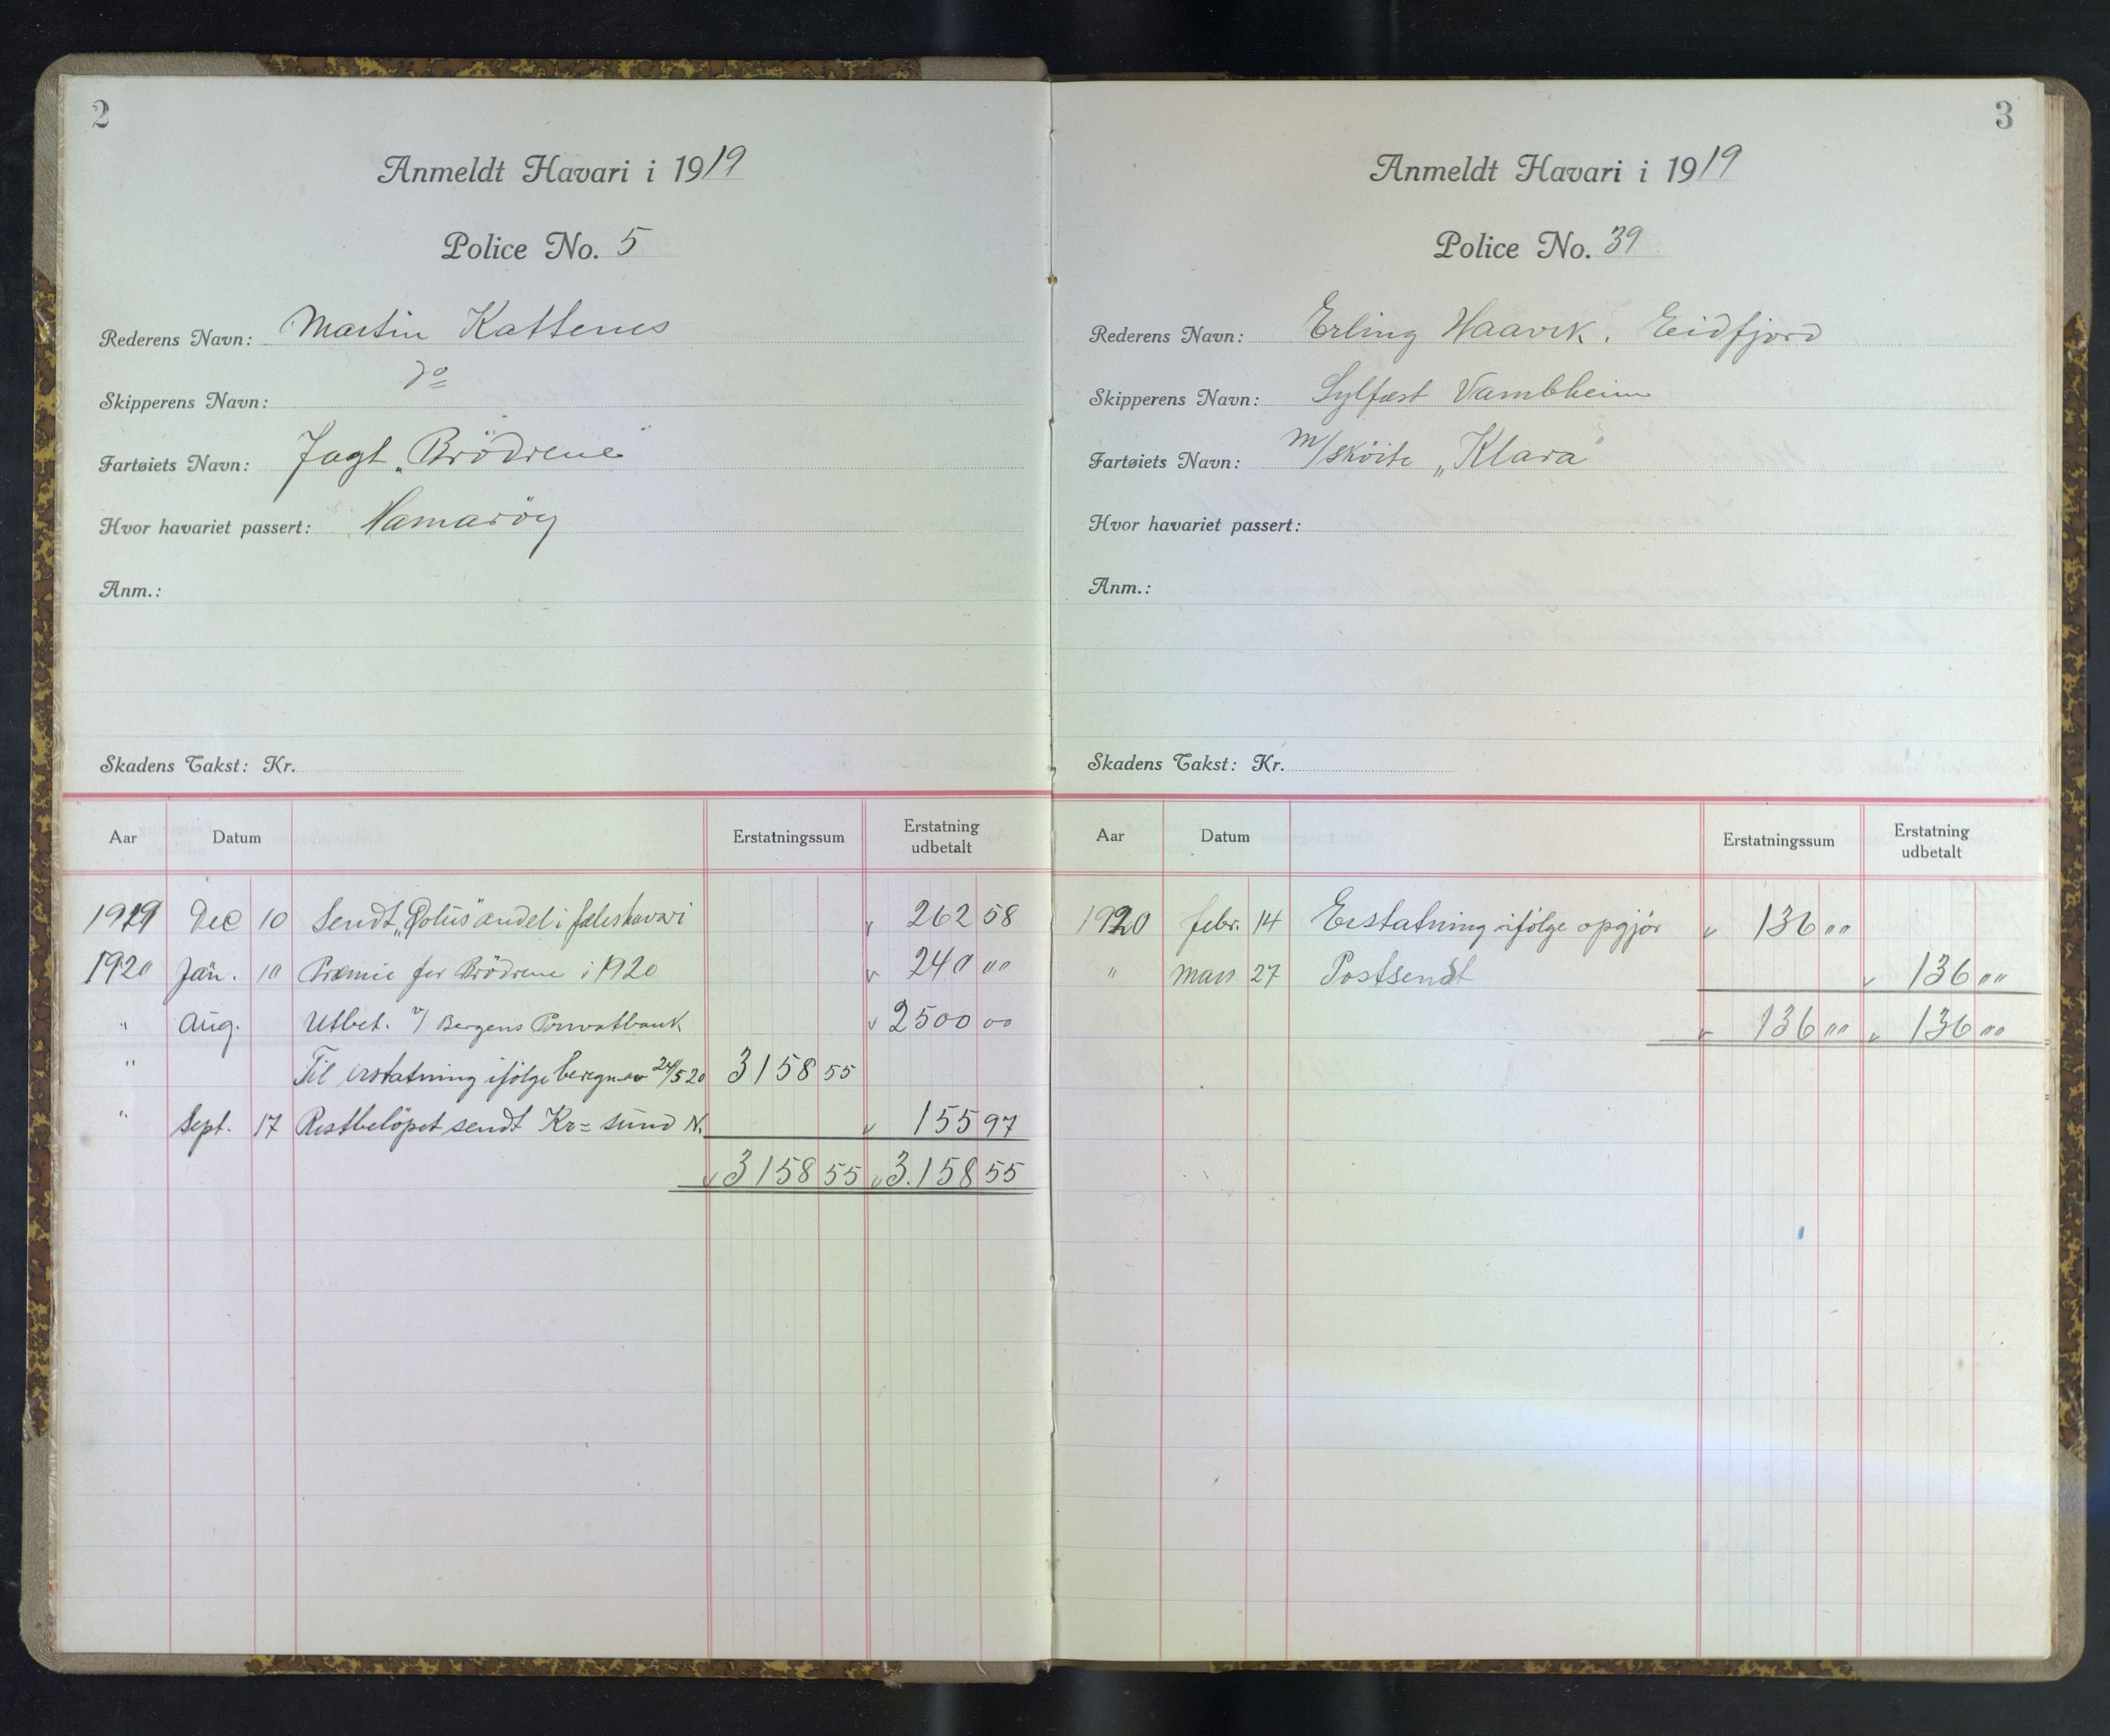 2
Anmeldt Havari i 1919
Police No. 5
Rederens Navn: Martin Kattenes
Skipperens Navn: do
Fartøiets Navn: Jagt „Brödrene"
Hvor havariet passert: Hamaröy
Anm.:
Skadens Takst: Kr.
Aar Datum Erstatningssum Erstatning udbetalt
1919 Dec 10 Sendt „Polus" andel i fæleshavari 262 58
1920 Jan. 10 Præmie for Brödrene i 1920 240 00
" Aug. Utbet. v/ Bergens Privatbank 2500 00
" Til erstatning ifölge beregn. av 24/5 20 3158 55
" Sept. 17 Restbelöpet sendt Kr=sund N. 155 97
3158 55 3.158 55
3
Anmeldt Havari i 1919
Police No. 39
Rederens Navn: Erling Haavik. Eidfjord
Skipperens Navn: Sylfest Vambheim
Fartøiets Navn: m/skőite „Klara"
Hvor havariet passert:
Anm.:
Skadens Takst: Kr.
Aar Datum Erstatningssum Erstatning udbetalt
1920 febr. 14 Erstatning ifölge opgjör 136 00
" mars 27 Postsendt 136 00
136 00 136 00